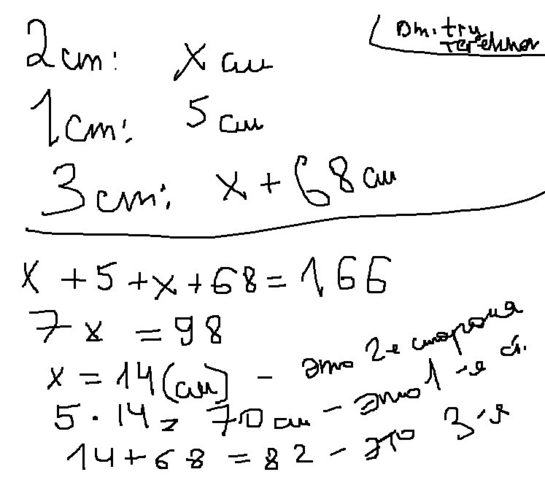 Dmitry
2 ст: x см
1 ст: 5 см
3 ст: x + 68 см
x + 5 + x + 68 = 166
7x = 98
x = 14 (см) - это 2-я сторона
5 · 14 = 70 см - это 1-я с.
14 + 68 = 82 - это 3-я